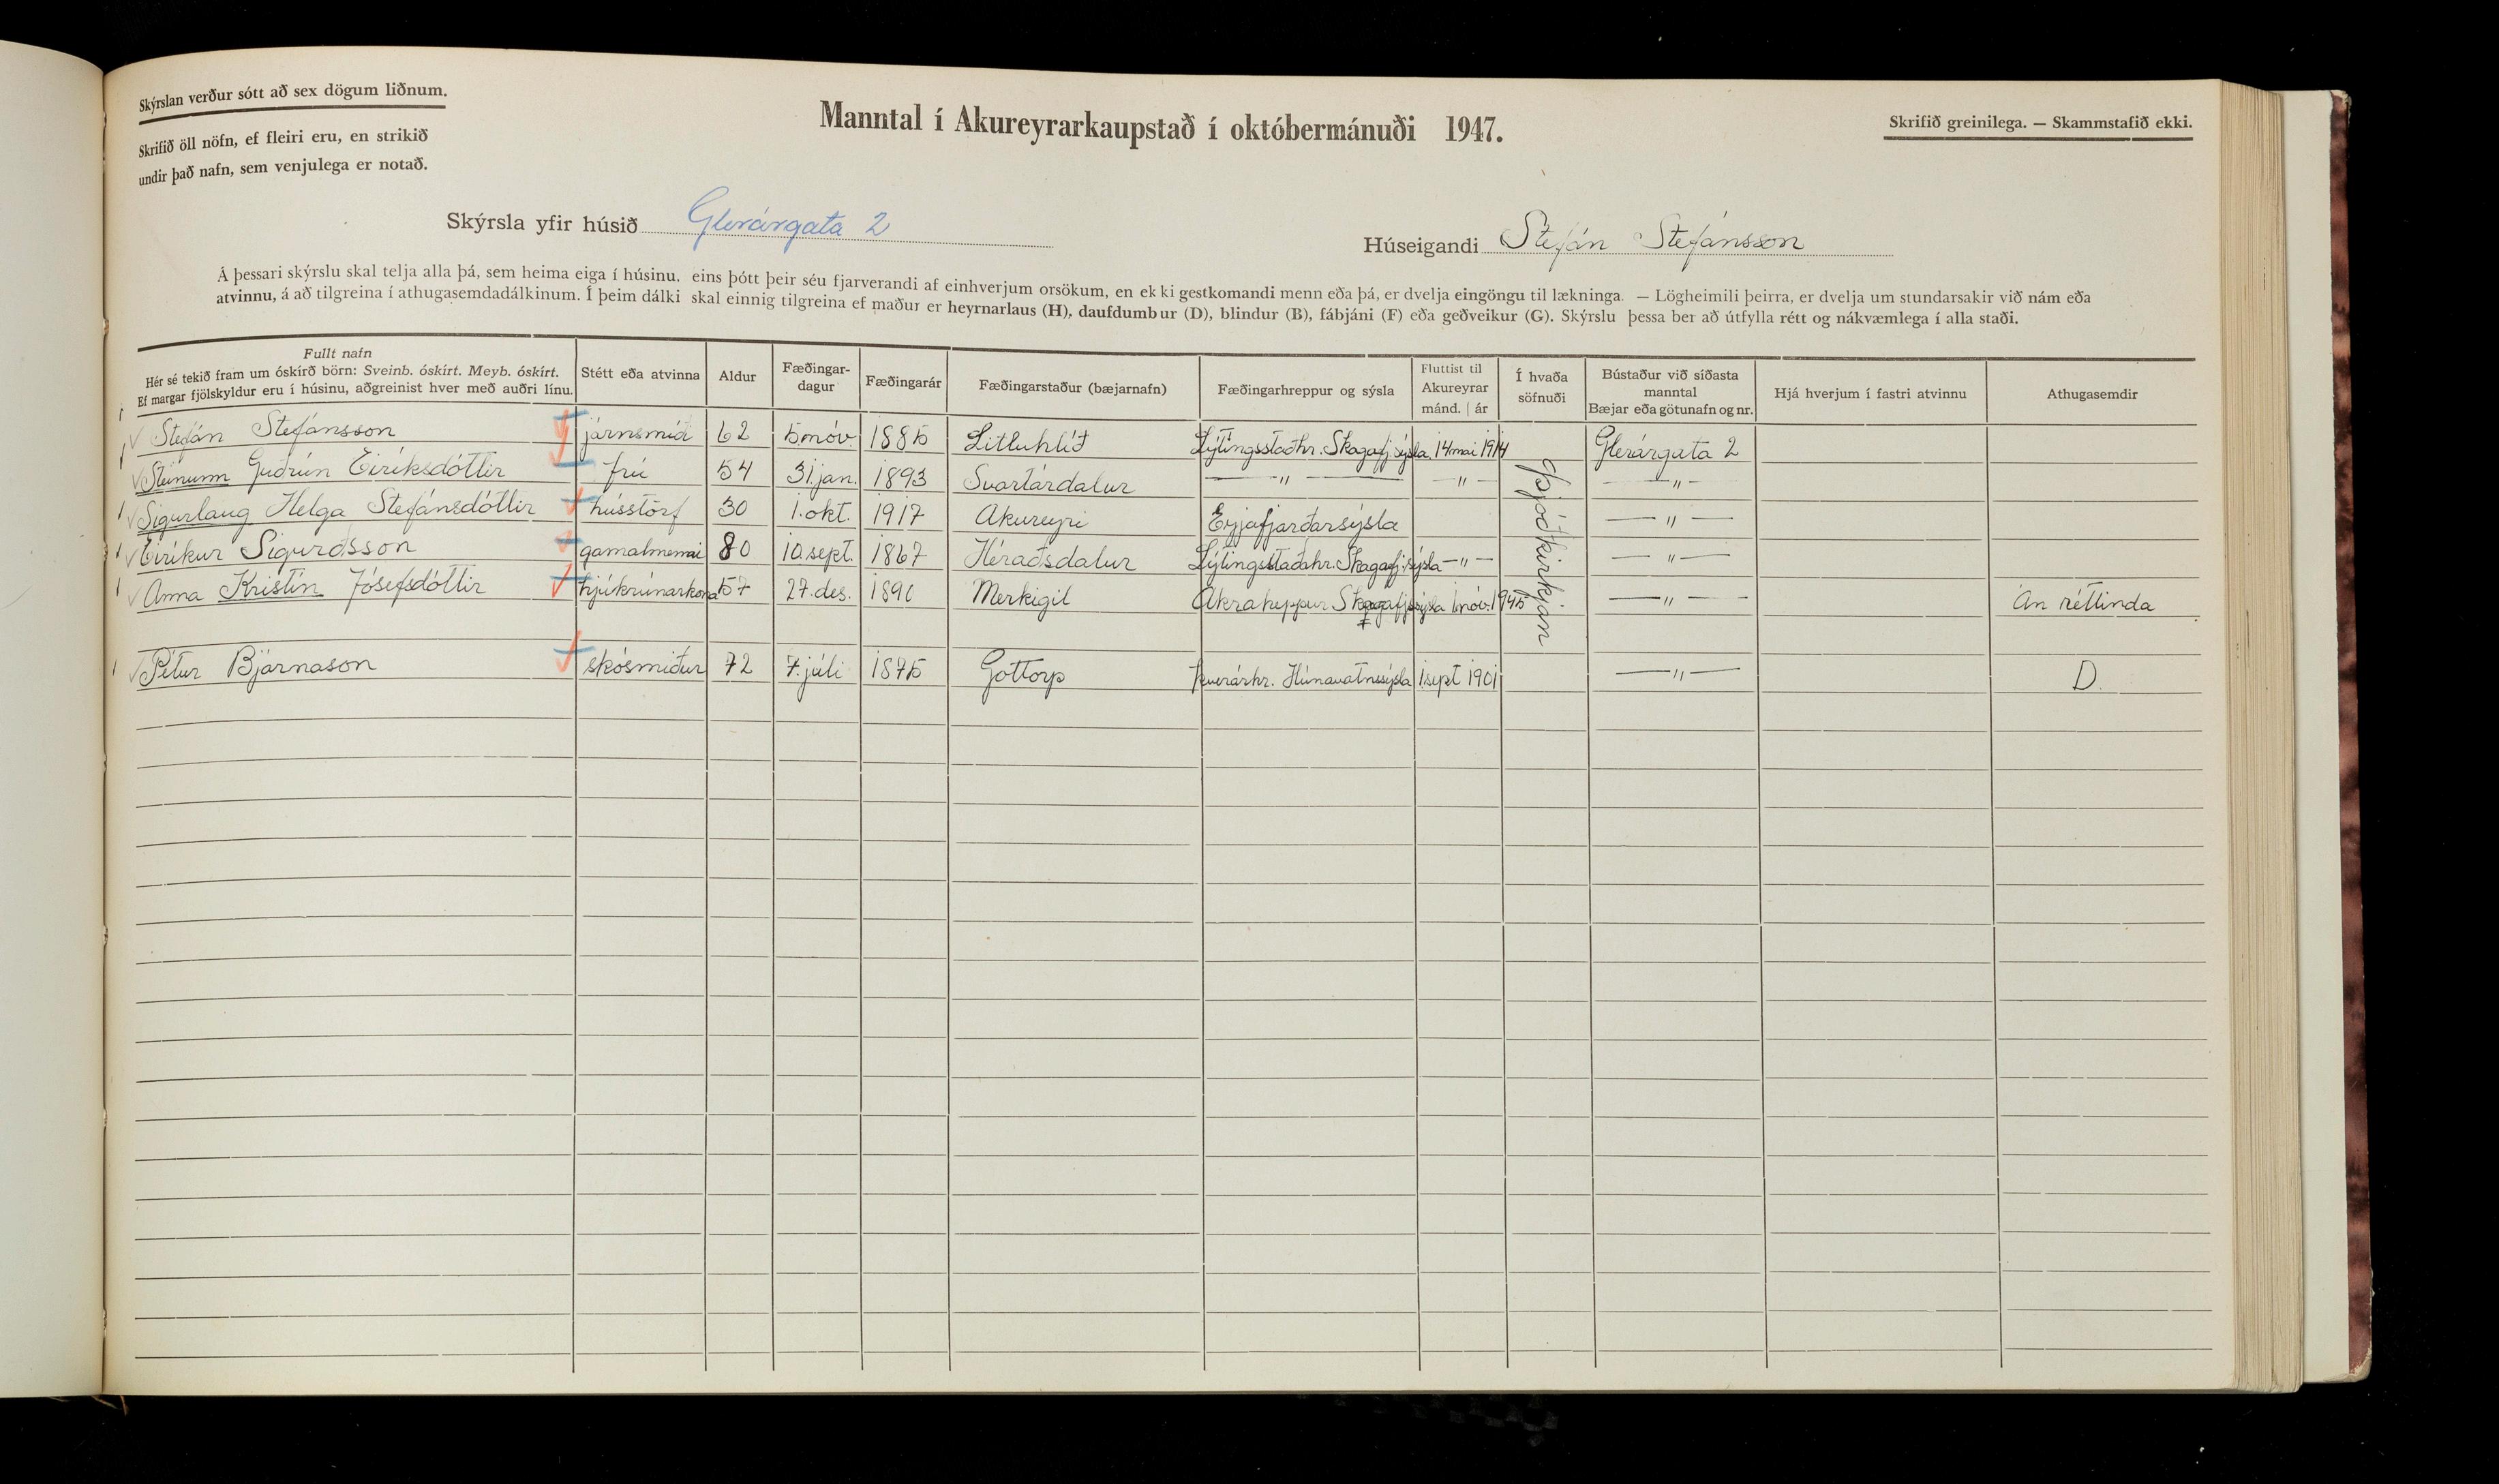 Skýrslan verður sótt að sex dögum liðnum.
Skrifið öll nöfn, ef fleiri eru, en strikið
undir það nafn, sem venjulega er notað.
Manntal í Akureyrarkaupstað í októbermánuði 1947.
Skrifið greinilega. — Skammstafið ekki.
Skýrsla yfir húsið Glerárgata 2
Húseigandi Stefán Stefánsson
Á þessari skýrslu skal telja alla þá, sem heima eiga í húsinu, eins þótt þeir séu fjarverandi af einhverjum orsökum, en ekki gestkomandi menn eða þá, er dvelja eingöngu til lækninga. — Lögheimili þeirra, er dvelja um stundarsakir við nám eða
atvinnu, á að tilgreina í athugasemdadálkinum. Í þeim dálki skal einnig tilgreina ef maður er heyrnarlaus (H), daufdumbur (D), blindur (B), fábjáni (F) eða geðveikur (G). Skýrslu þessa ber að útfylla rétt og nákvæmlega í alla staði.
Fullt nafn
Hér sé tekið fram um óskírð börn: Sveinb. óskírt. Meyb. óskírt.
Ef margar fjölskyldur eru í húsinu, aðgreinist hver með auðri línu.
Stétt eða atvinna
Aldur
Fæðingar-
dagur
Fæðingarár
Fæðingarstaður (bæjarnafn)
Fæðingarhreppur og sýsla
Fluttist til
Akureyrar
mánd. | ár
Í hvaða
söfnuði
Bústaður við síðasta
manntal
Bæjar eða götunafn og nr.
Hjá hverjum í fastri atvinnu
Athugasemdir
Stefán Stefánsson járnsmið 62 5 nóv. 1885 Litluhlíð Lýtingsstaðhr. Skagafj.sýsla 14 mai 1914 Glerárgata 2
Steinunn Guðrún Eiríksdóttir frú 54 31. jan. 1893 Svartárdalur — " — — " — — " —
Sigurlaug Helga Stefánsdóttir hússtörf 30 1. okt. 1917 Akureyri Eyjafjarðarsýsla — " —
Eiríkur Sigurðsson gamalmenni 80 10. sept. 1867 Héraðsdalur Lýtingsstaðahr. Skagafj.sýsla — " — — " —
Anna Kristín Jósefsdóttir hjúkrúnarkona 57 27. des. 1890 Merkigil Akrahreppur Skagafj.sýsla 1 nóv. 1945 — " — Án réttinda
Þjóðkirkjan
Pétur Bjarnason skósmiður 72 7. júlí 1875 Gottorp Þverárhr. Húnavatnssýsla 1 sept 1901 — " — D.